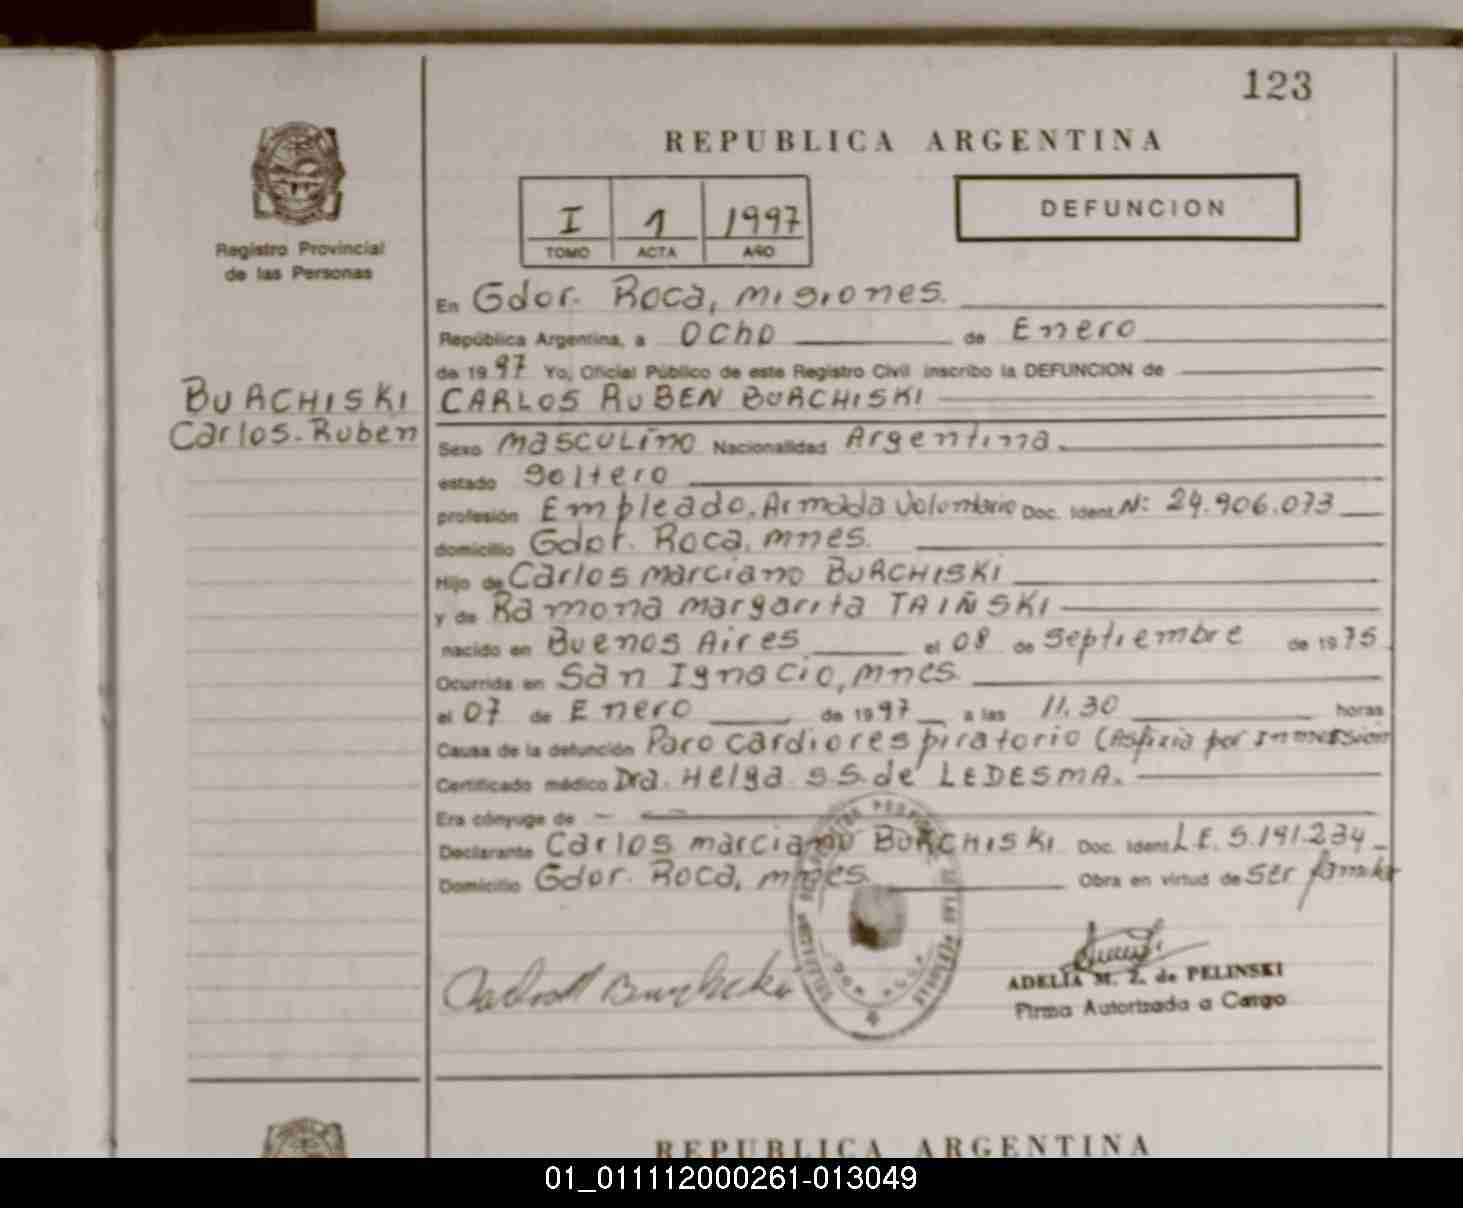 123
REPUBLICA ARGENTINA
I 1 1997
TOMO ACTA AÑO
DEFUNCION
Registro Provincial
de las Personas
BURCHISKI
Carlos-Ruben
En Gdor. Roca, misiones.
República Argentina, a Ocho de Enero
de 1997 Yo, Oficial Público de este Registro Civil inscribo la DEFUNCION de
CARLOS RUBEN BURCHISKI
Sexo masculino Nacionalidad Argentina.
estado Soltero
profesión Empleado. Armada Voluntario Doc. Ident. N: 24.906.073
domicilio Gdor. Roca, mnes.
Hijo de Carlos marciano BURCHISKI
y de Ramona margarita TAIÑSKI
nacido en Buenos Aires el 08 de septiembre de 1975
Ocurrida en San Ignacio, mnes.
el 07 de Enero de 1997 a las 11.30 horas
Causa de la defunción Paro cardiorespiratorio (Asfixia por Inmersion
Certificado médico Dra. Helga S.S. de LEDESMA.
Era cónyuge de
Declarante Carlos marciano BURCHISKI Doc. Ident. L.E. 5.191.234
Domicilio Gdor. Roca, mnes Obra en virtud de Ser familiar
ADELIA M. Z. de PELINSKI
Firma Autorizada a Cargo
REPUBLICA ARGENTINA
01_011112000261-013049